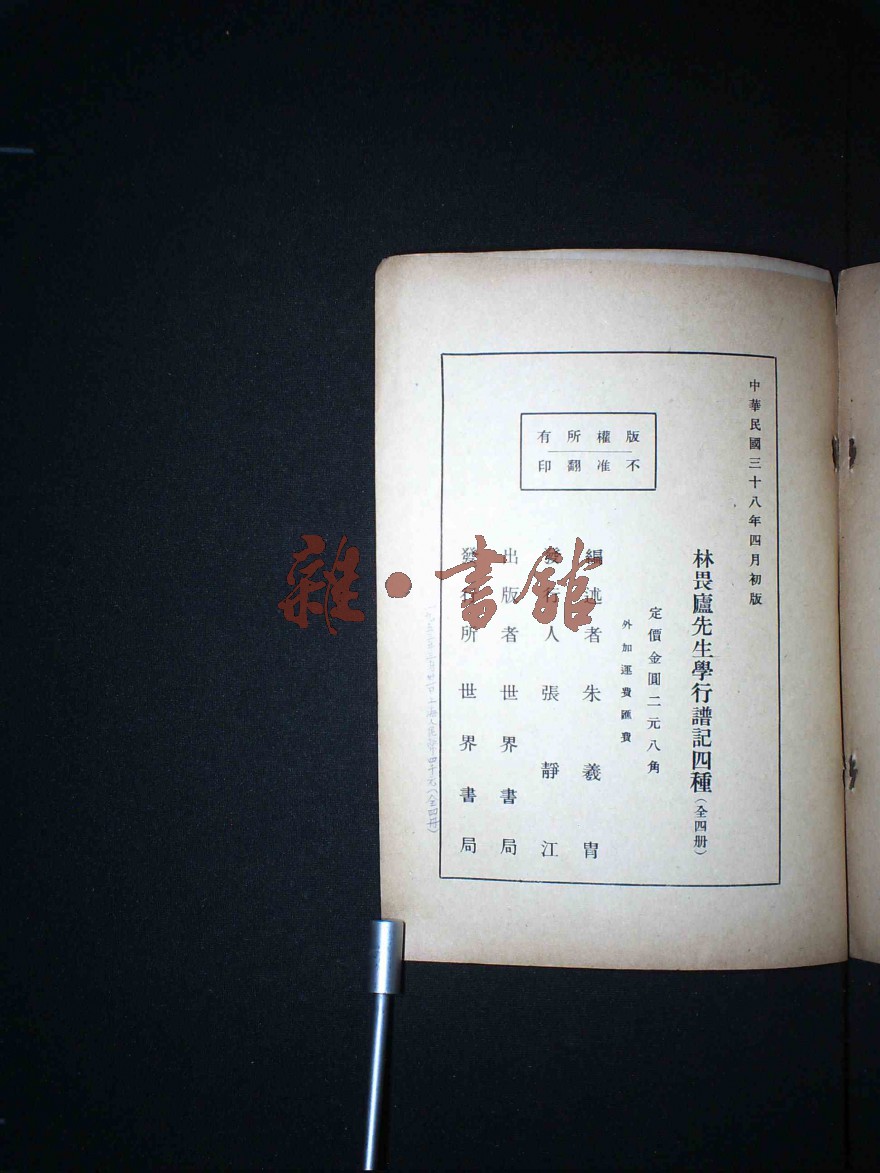 中華民國三十八年四月初版
林畏廬先生學行譜記四種(全四册)
定價金圓二元八角
外加運費匯費
版權所有
不准翻印
編述者 朱羲冑
發行人 張靜江
出版者 世界書局
發行所 世界書局
雜·書館